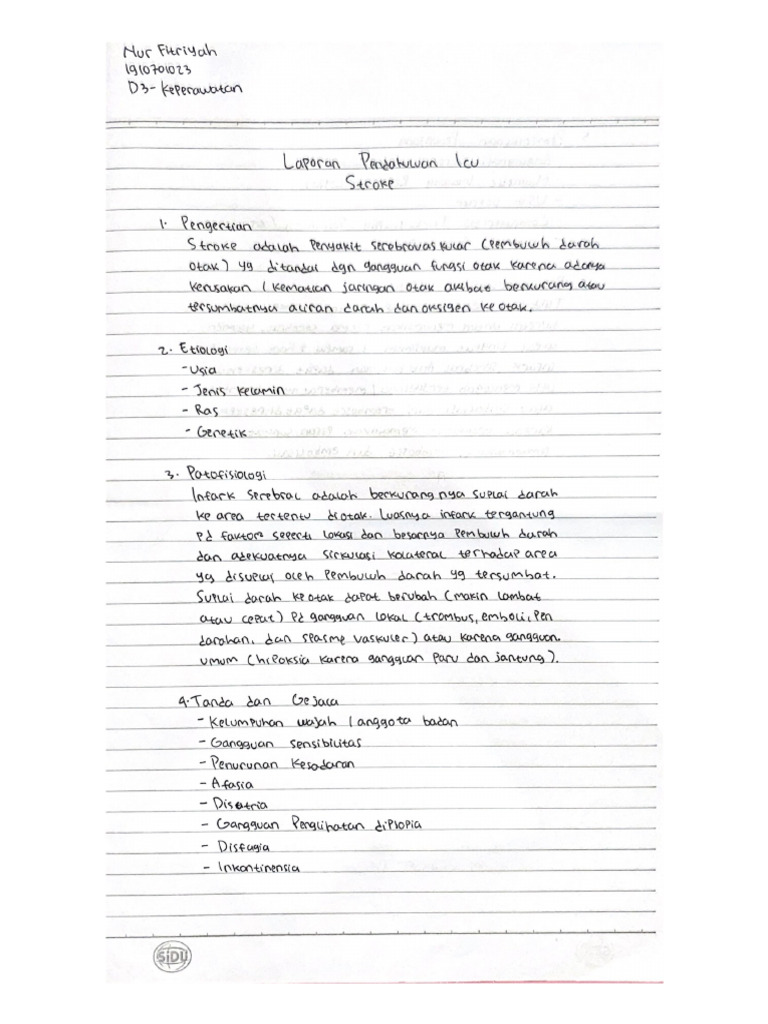 Nur Fitriyah
1910701023
D3-Keperawatan
Laporan Pendahuluan Icu
Stroke
1. Pengertian
Stroke adalah Penyakit serebrovaskular (Pembuluh darah
otak) yg ditandai dgn gangguan fungsi otak karena adanya
kerusakan / kematian jaringan otak akibat berkurang atau
tersumbatnya aliran darah dan oksigen ke otak.
2. Etiologi
- Usia
- Jenis kelamin
- Ras
- Genetik
3. Patofisiologi
Infark serebral adalah berkurangnya suplai darah
ke area tertentu diotak. Luasnya infark tergantung
Pd faktor seperti lokasi dan besarnya Pembuluh darah
dan adekuatnya sirkulasi kolateral terhadap area
yg disuplai oleh Pembuluh darah yg tersumbat.
Suplai darah ke otak dapat berubah (makin lambat
atau cepat) Pd gangguan lokal (trombus, emboli, Pen
darahan, dan spasme vaskuler) atau karena gangguan
umum (hipoksia karena gangguan Paru dan jantung).
4. Tanda dan Gejala
- Kelumpuhan wajah / anggota badan
- Gangguan sensibilitas
- Penurunan Kesadaran
- Afasia
- Disatria
- Gangguan Penglihatan diplopia
- Disfagia
- Inkontinensia
SiDU